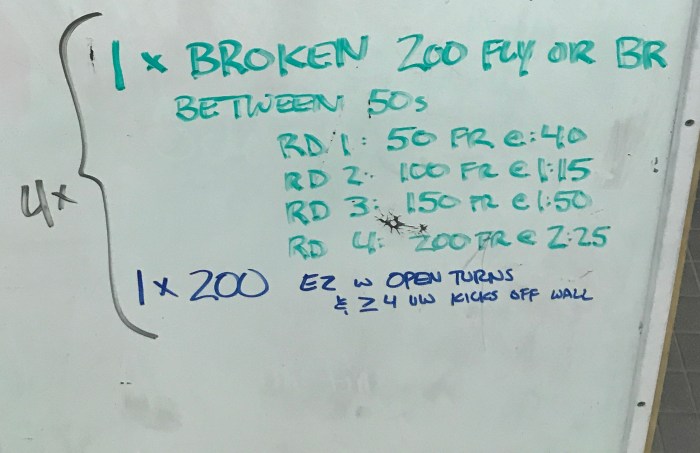 4x
1 x BROKEN 200 FLY OR BR
BETWEEN 50s
RD 1: 50 FR @ :40
RD 2: 100 FR @ 1:15
RD 3: 150 FR @ 1:50
RD 4: 200 FR @ 2:25
1 x 200 EZ w OPEN TURNS
& ≥ 4 UW KICKS OFF WALL